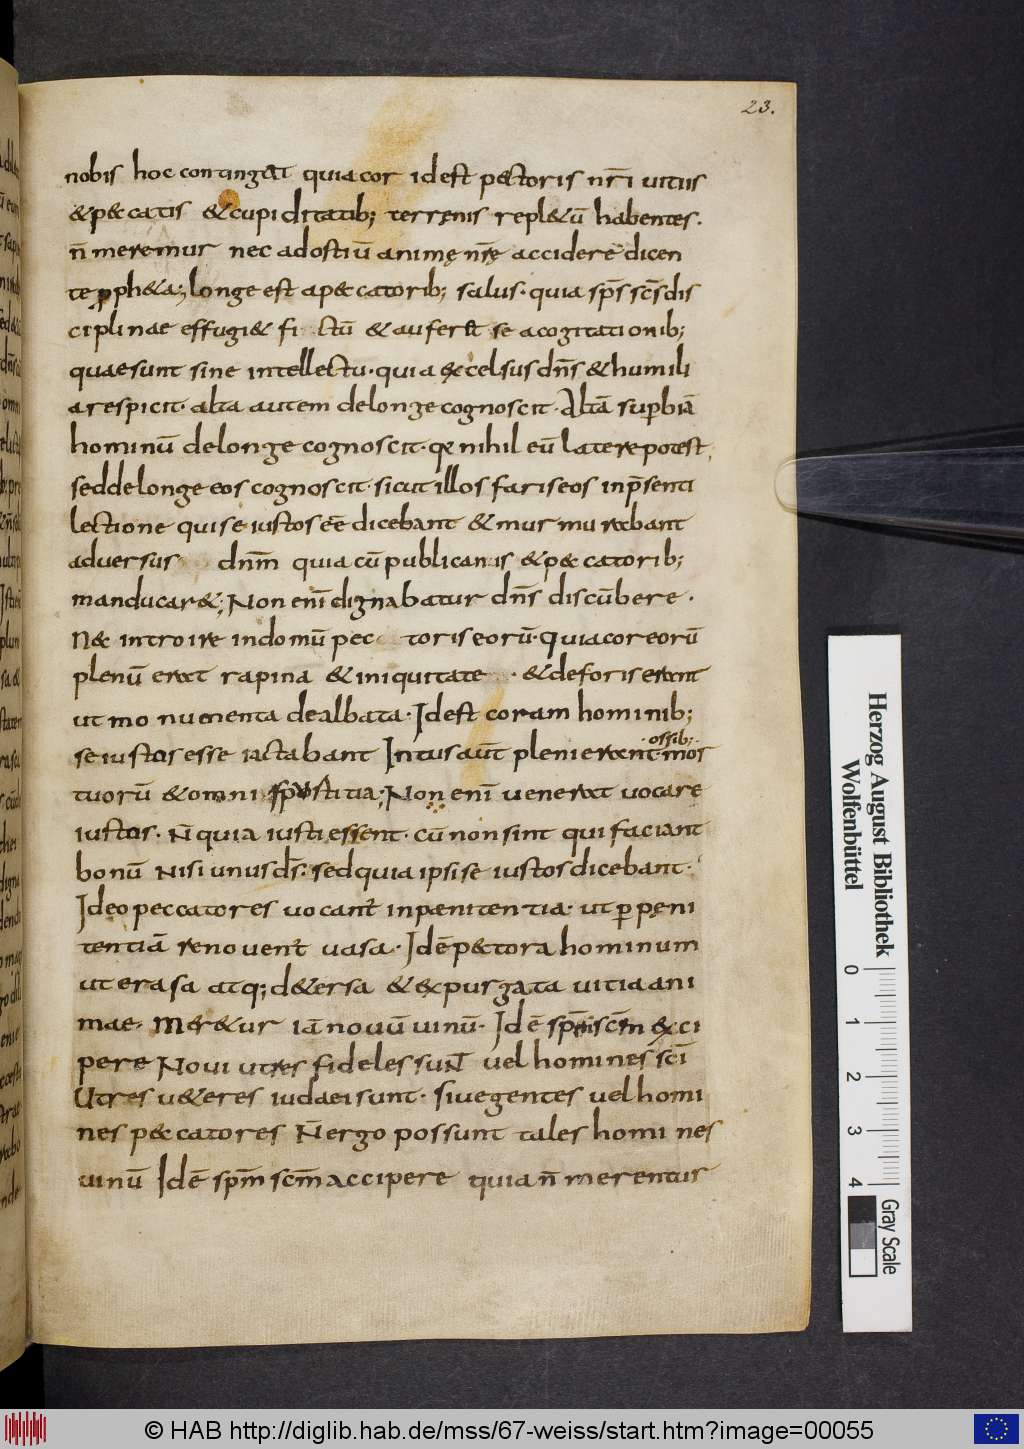 23.
nobis hoc contingat quia cor id est pectoris nr̄i vitiis
& peccatis & cupiditatib; terrenis repl&ū habentes.
n̄ meremur nec ad ostiū animę nr̄ę accidere dicen
te proph&a; longe est a peccatorib; salus· quia sp̄s sc̄s dis
ciplinae effugi& fictū & aufert se a cogitationib;
quae sunt sine intellectu· quia excelsus dn̄s & humili
a respicit· alta autem de longe cognoscit· Altā superbiā
hominū de longe cognoscit· nihil eū latere potest,
sed de longe eos cognoscit· sicut illos fariseos in p̄senti
lectione qui se iustos eē dicebant & murmurabant
adversus dn̄m quia cū publicanis & peccatorib;
manducar&; Non eni dignabatur dn̄s discūbere·
Nec introire in domū pectoris eorū· quia cor eorū
plenū erat rapina & iniquitate · & deforis erant
ut monumenta dealbata· Id est coram hominib;
se iustos esse iactabant Intus aut̄ pleni erant· ossib; mor
tuorū & omni spurtitia; Non eni venerat vocare
iustos· N̄ quia iusti essent· cū non sint qui faciant
bonū Nisi unus ds̄· sed quia ipsi se iustos dicebant·
Ideo peccatores vocant in paenitentia· ut per pęni
tentiā renovent vasa· Id ē pectora hominum
ut erasa atq; d&ersa & expurgata vitia ani
mae· Mer&ur iā novū vinū· Id ē sp̄m sc̄m exci
pere Novi utres fideles sunt vel homines sc̄i
Utres v&eres iudaei sunt· sive gentes vel homi
nes peccatores N̄ ergo possunt tales homines
vinū Id ē sp̄m sc̄m accipere quia n̄ merentur
Herzog August Bibliothek
Wolfenbüttel
0 1 2 3 4
Gray Scale
© HAB http://diglib.hab.de/mss/67-weiss/start.htm?image=00055